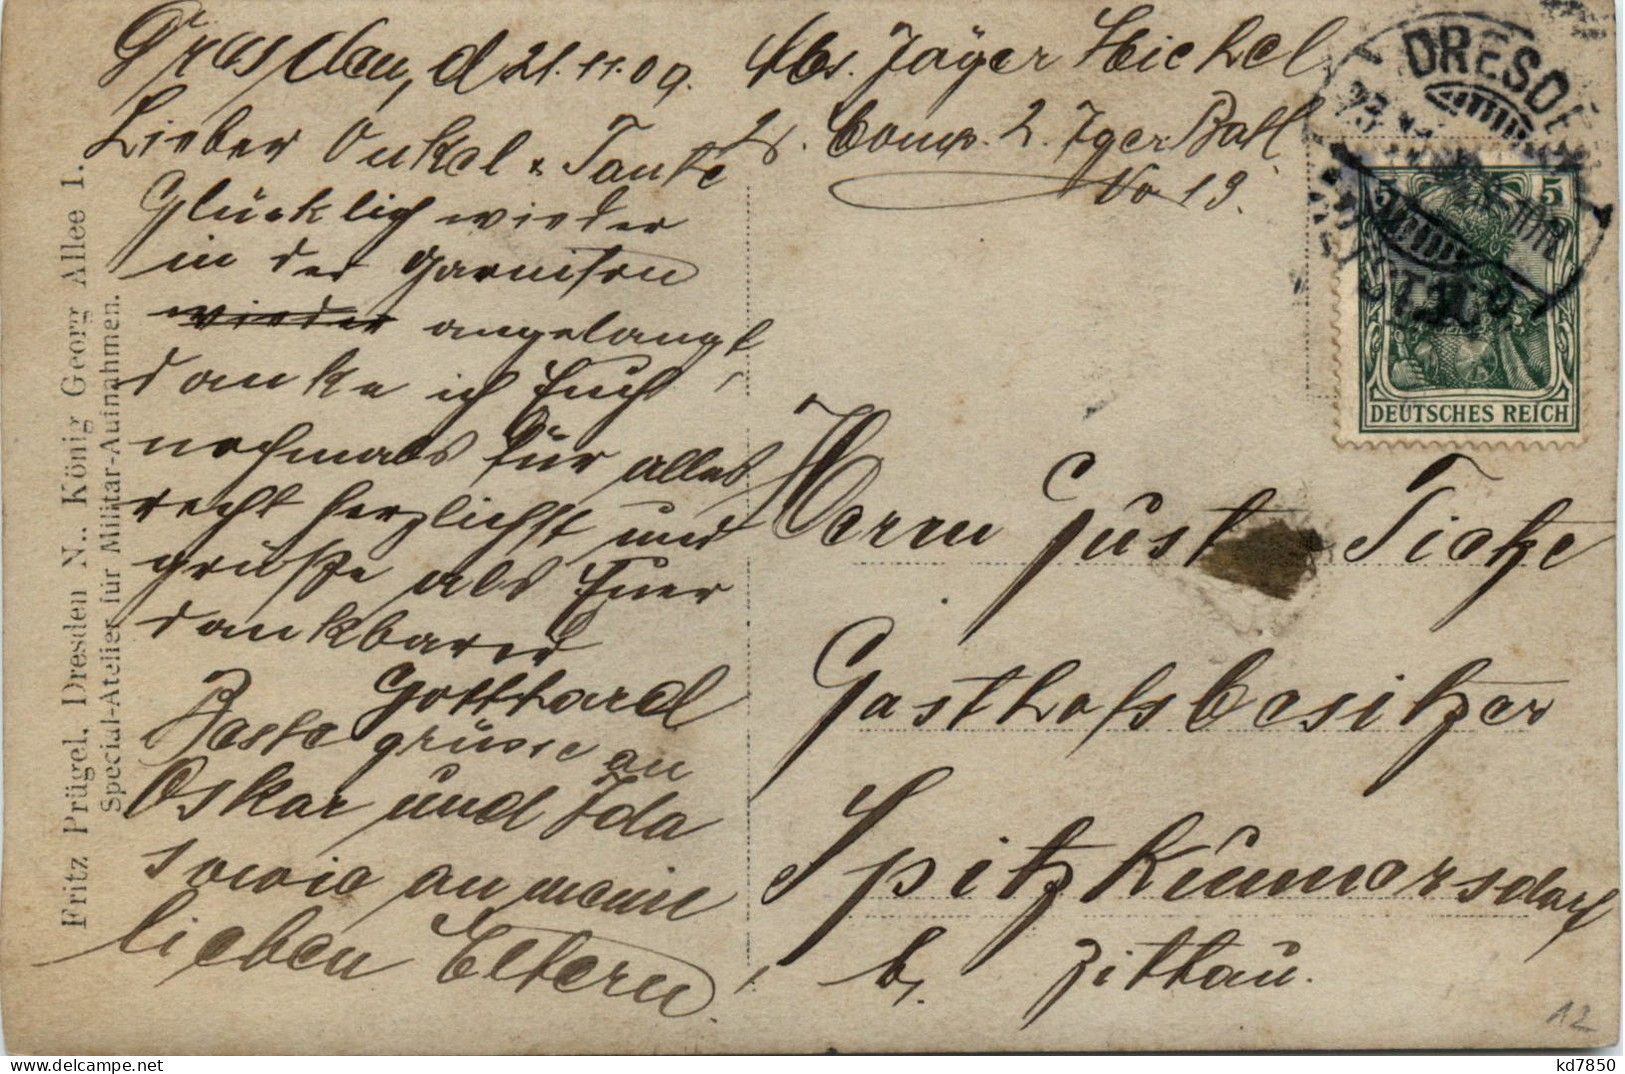 Dresden, d 21.11.09.
Lieber Onkel & Tante
Glücklich wieder
in der Garnison
wieder angelangt
danke ich Euch
nochmals für alles
recht herzlichst und
grüße als Euer
dankbarer
Gotthard
Beste grüsse an
Oskar und Ida
sowie an meine
lieben Eltern.
Abs. Jäger Hichel
2. Comp. 2. Jger Batl
No 13.
DRESDEN
5 5
DEUTSCHES REICH
Herrn Gust Tietze
Gasthofsbesitzer
Spitzkunnersdorf
b. Zittau.
Fritz Prügel, Dresden N., König Georg Allee 1.
Special-Atelier für Militär-Aufnahmen.
12
kd7850